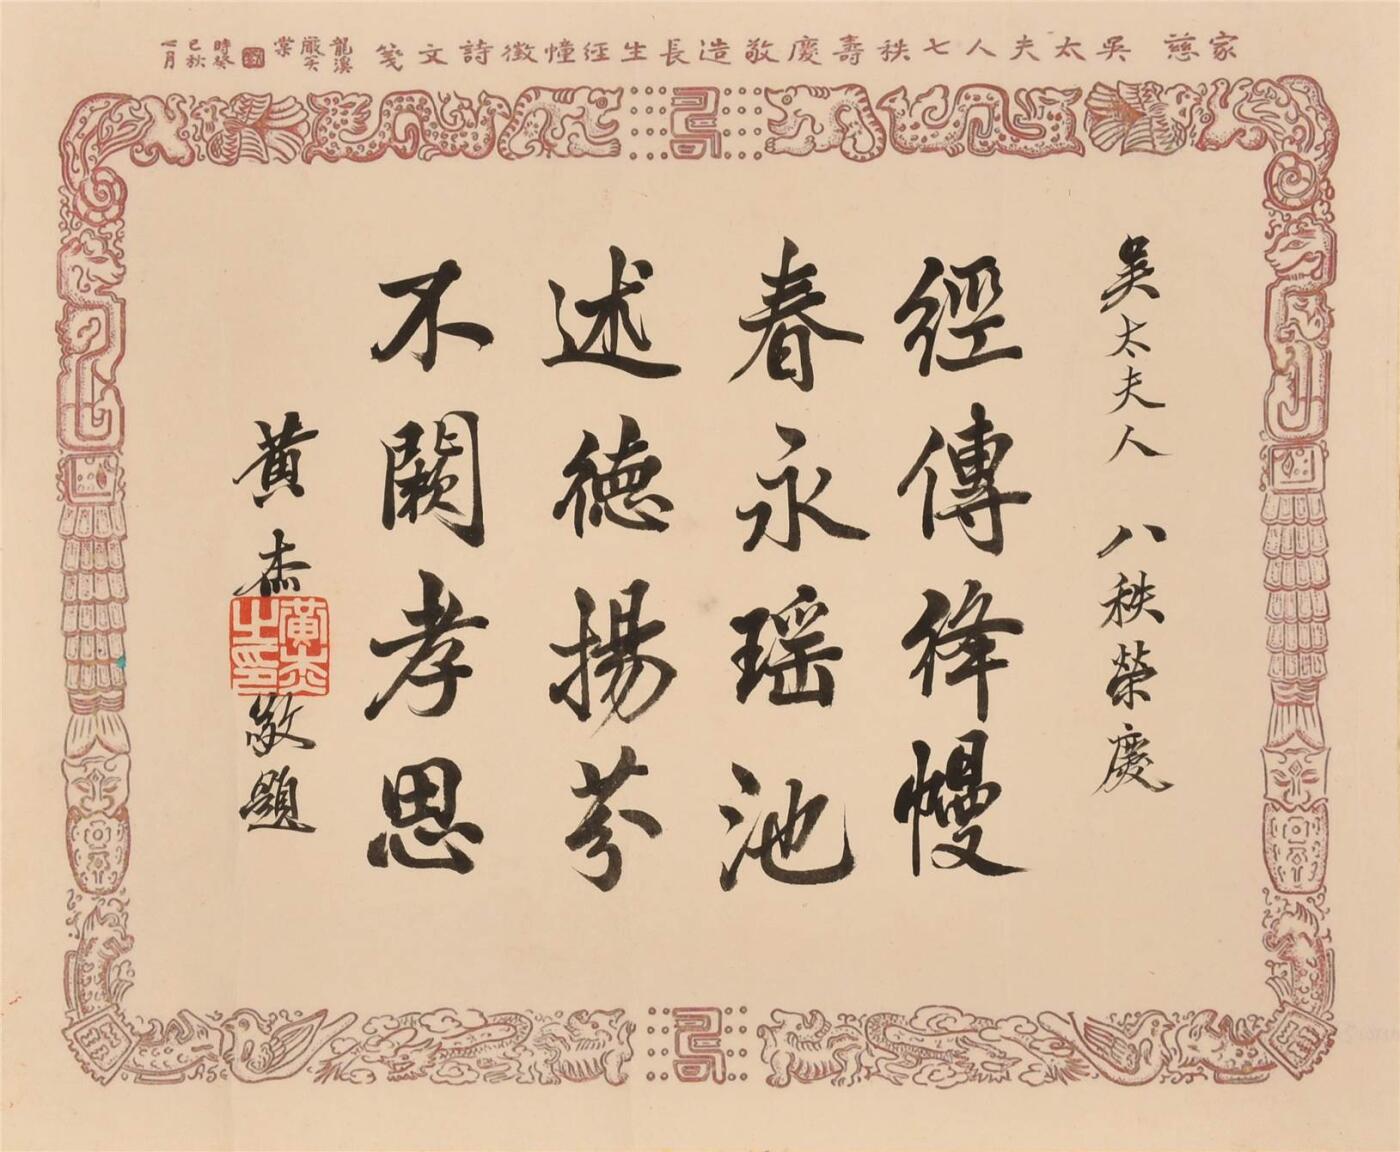 家慈 吳太夫人七秩壽慶敬造長生經幢徵詩文箋
龍溪
嚴笑棠
時癸
巳秋
七月
吳太夫人 八秩榮慶
經傳絳幔
春永瑤池
述德揚芬
不闕孝思
黃杰敬題
黃杰之印